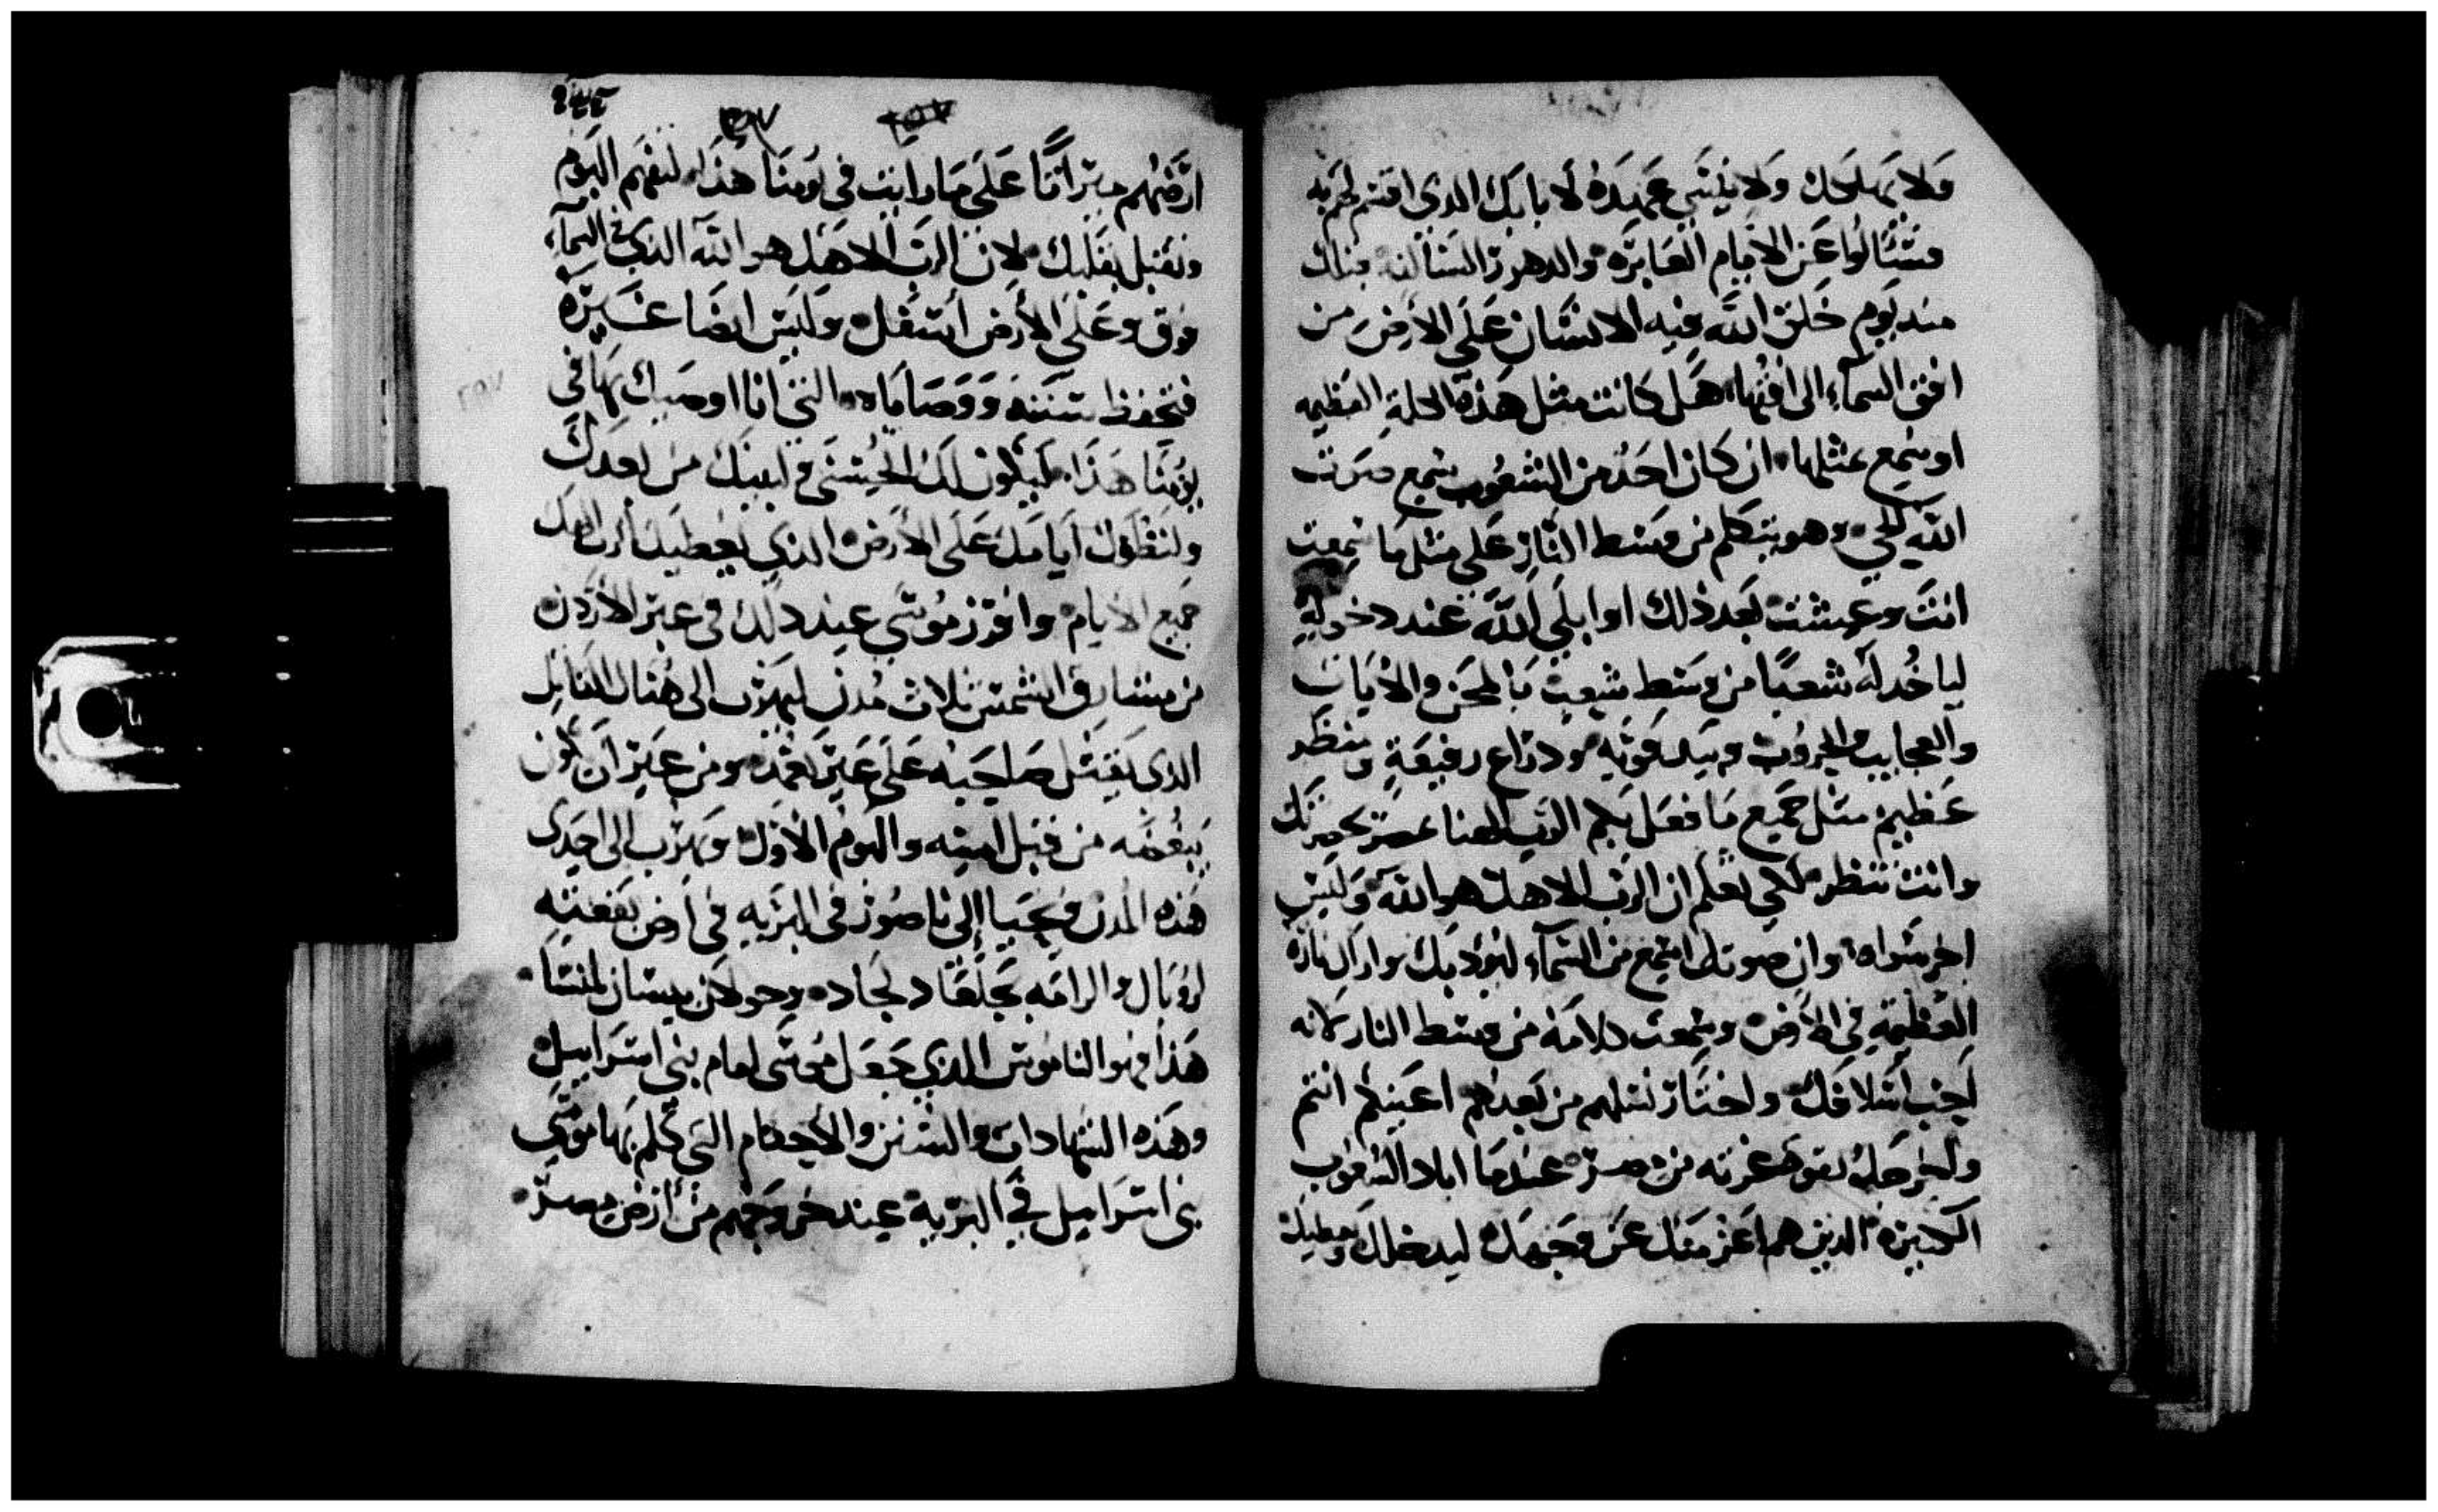 ولا يهلكك ولا ينسي عهده لابايك الدي اقسم لهم به
فتسالوا عن الايام العابره والدهور السالفه قبلك
مند يوم خلق الله فيه الانسان علي الارض من
افق السماء الي افقها هل كانت مثل هذه الكلمة العظيمه
او سمع بمثلها ان كان احد من الشعوب سمع صوت
الله الحي وهو يتكلم من وسط النار علي مثل ما سمعت
انت وعيشت بعد ذلك او ابلي الله عند دخوله
لياخد له شعبًا من وسط شعب بالمحن والايات
والعجايب والحروب وبيد قويه ودراع رفيعة ومنظر
عظيم مثل جميع ما فعل بكم الرب الهنا بمصر بحضرتك
وانت تنظر لكي تعلم ان الرب الاهك هو الله وليس
اخر سواه وان صوتك اسمع من السماء ليودبك واراك ناره
العظيمة في الارض وسمعت كلامه من وسط النار لانه
احب اسلافك واختار نسلهم من بعدهم اعينكم انتم
واخرجك بقوة عزته من مصر عندما اباد الشعوب
الكبيرة الدين هم اعز منك عن وجهك ليدخلك ويعطيك
ارضهم ميراتًا علي ما رايت في يومنا هذا لتفهم اليوم
وتقبل بقلبك لان الرب الاهك هو الله الذي في السماء
فوق وعلي الارض اسفل وليس ايضا غيره
فتحفظ سننه ووصاياه التي انا اوصيك بها في
يومنا هذا ليكون لك الحسني في ابنك من بعدك
ولتطول ايامك علي الارض الذي يعطيك الرب الهك
جميع الايام وافرز موسي عند دلك في عبر الاردن
من مشارق الشمس ثلاث مدن ليهرب الي هناك القاتل
الدي يقتل صاحبه علي غير تعمد ومن غير ان يكون
يبغضه من قبل امسه واليوم الاول ويهرب الي احدي
هذه المدن فيحيا الي باصور في البريه في ارض بقعته
لروبال والرامه بجلعاد لجاد وجولان بيسان لمنسا
هذا هو الناموس الدي جعل موسي امام بني اسراييل
وهذه الشهادات والسنن والاحكام التي كلم بها موسي
بني اسراييل في البرية عند خروجهم من ارض مصر